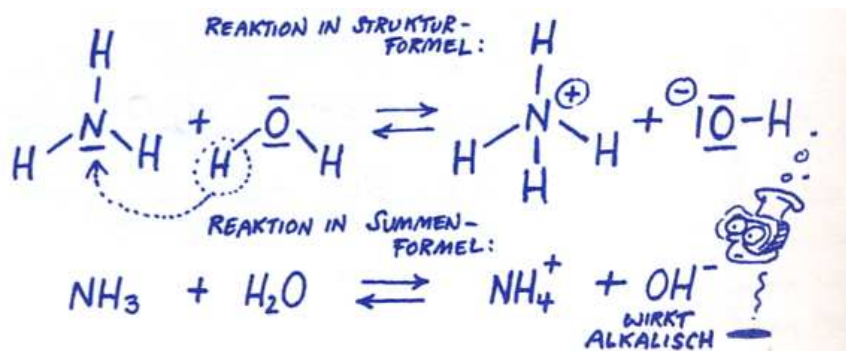 REAKTION IN STRUKTUR-
FORMEL:
H H
N + H O H ⇌ N ⊕ + ⊖ |O-H
H H H H
H
REAKTION IN SUMMEN-
FORMEL:
NH₃ + H₂O ⇌ NH₄⁺ + OH⁻
WIRKT
ALKALISCH